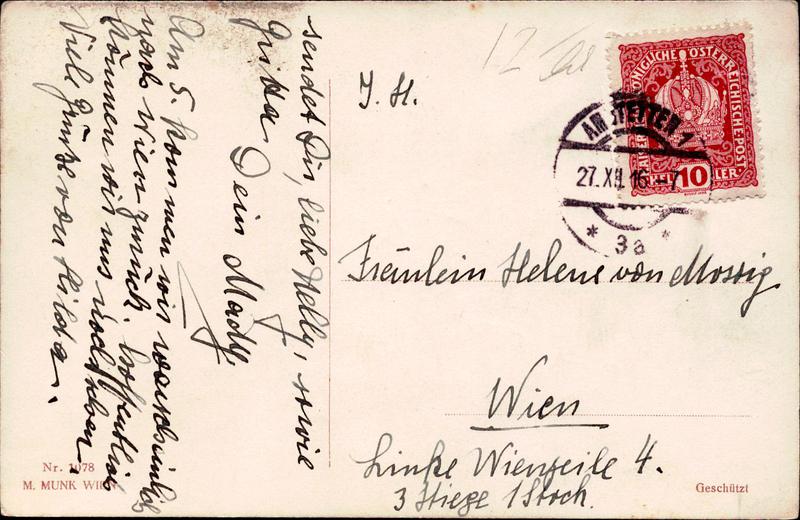 sendet Dir, liebe Helly, sowie
Gritta
Dein Mady.
Am 5. kommen wir wahrscheinlich
nach Wien zurück. Hoffentlich
können wir uns noch sehen.
Viele Grüße von Hilda.
12
J. H.
KÖNIGLICHE ÖSTERREICHISCHE POST
10
AMSTETTEN 1
27.XII.16 -7
* 3a *
Fräulein Helene von Mossig
Wien
Linke Wienzeile 4.
3 Stiege 1 Stock.
Nr. 1078
M. MUNK WIEN
Geschützt